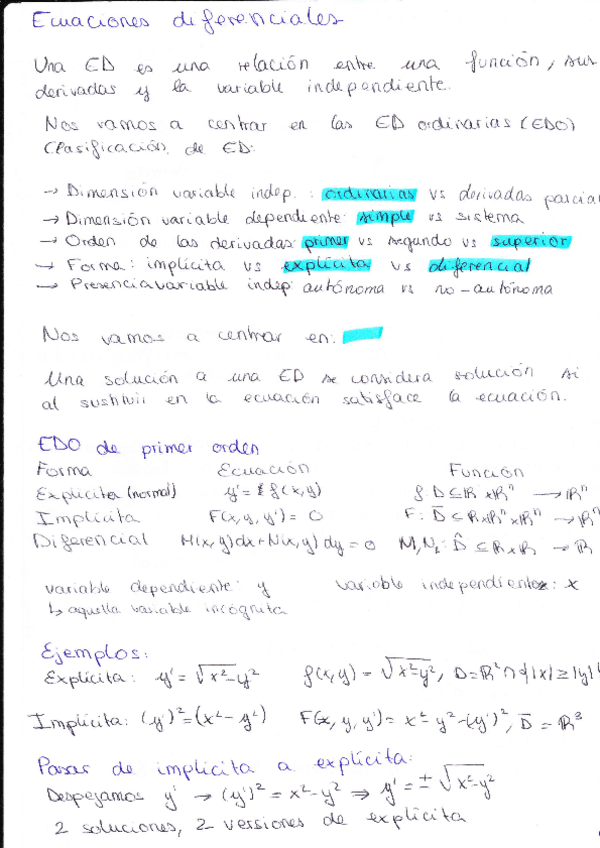 Ecuaciones diferenciales
Una ED es una relación entre una función, sus
derivadas y la variable independiente.
Nos vamos a centrar en las ED ordinarias (EDO)
Clasificación de ED:
→ Dimensión variable indep. : ordinarias vs derivadas parcia
→ Dimensión variable dependiente: simple vs sistema
→ Orden de las derivadas: primer vs segundo vs superior
→ Forma: implícita vs explícita vs diferencial
→ Presencia variable indep: autónoma vs no-autónoma
Nos vamos a centrar en:
Una solución a una ED se considera solución si
al sustituir en la ecuación satisface la ecuación.
EDO de primer orden
Forma Ecuación Función
Explícita (normal) y' = f(x,y) f: D ⊆ ℝ×ℝⁿ → ℝⁿ
Implícita F(x, y, y') = 0 F: D̄ ⊆ ℝ×ℝⁿ×ℝⁿ → ℝⁿ
Diferencial M(x,y)dx + N(x,y)dy = 0 M, N: D̂ ⊆ ℝ×ℝ → ℝ
variable dependiente: y variable independiente: x
↳ aquella variable incógnita
Ejemplos:
Explícita: y' = √x²-y² f(x,y) = √x²-y², D=ℝ²∩{|x|≥|y|}
Implícita: (y')² = (x²-y²) F(x, y, y') = x²-y²-(y')², D̄ = ℝ³
Pasar de implícita a explícita:
Despejamos y' → (y')² = x²-y² ⇒ y' = ±√x²-y²
2 soluciones, 2 versiones de explícita